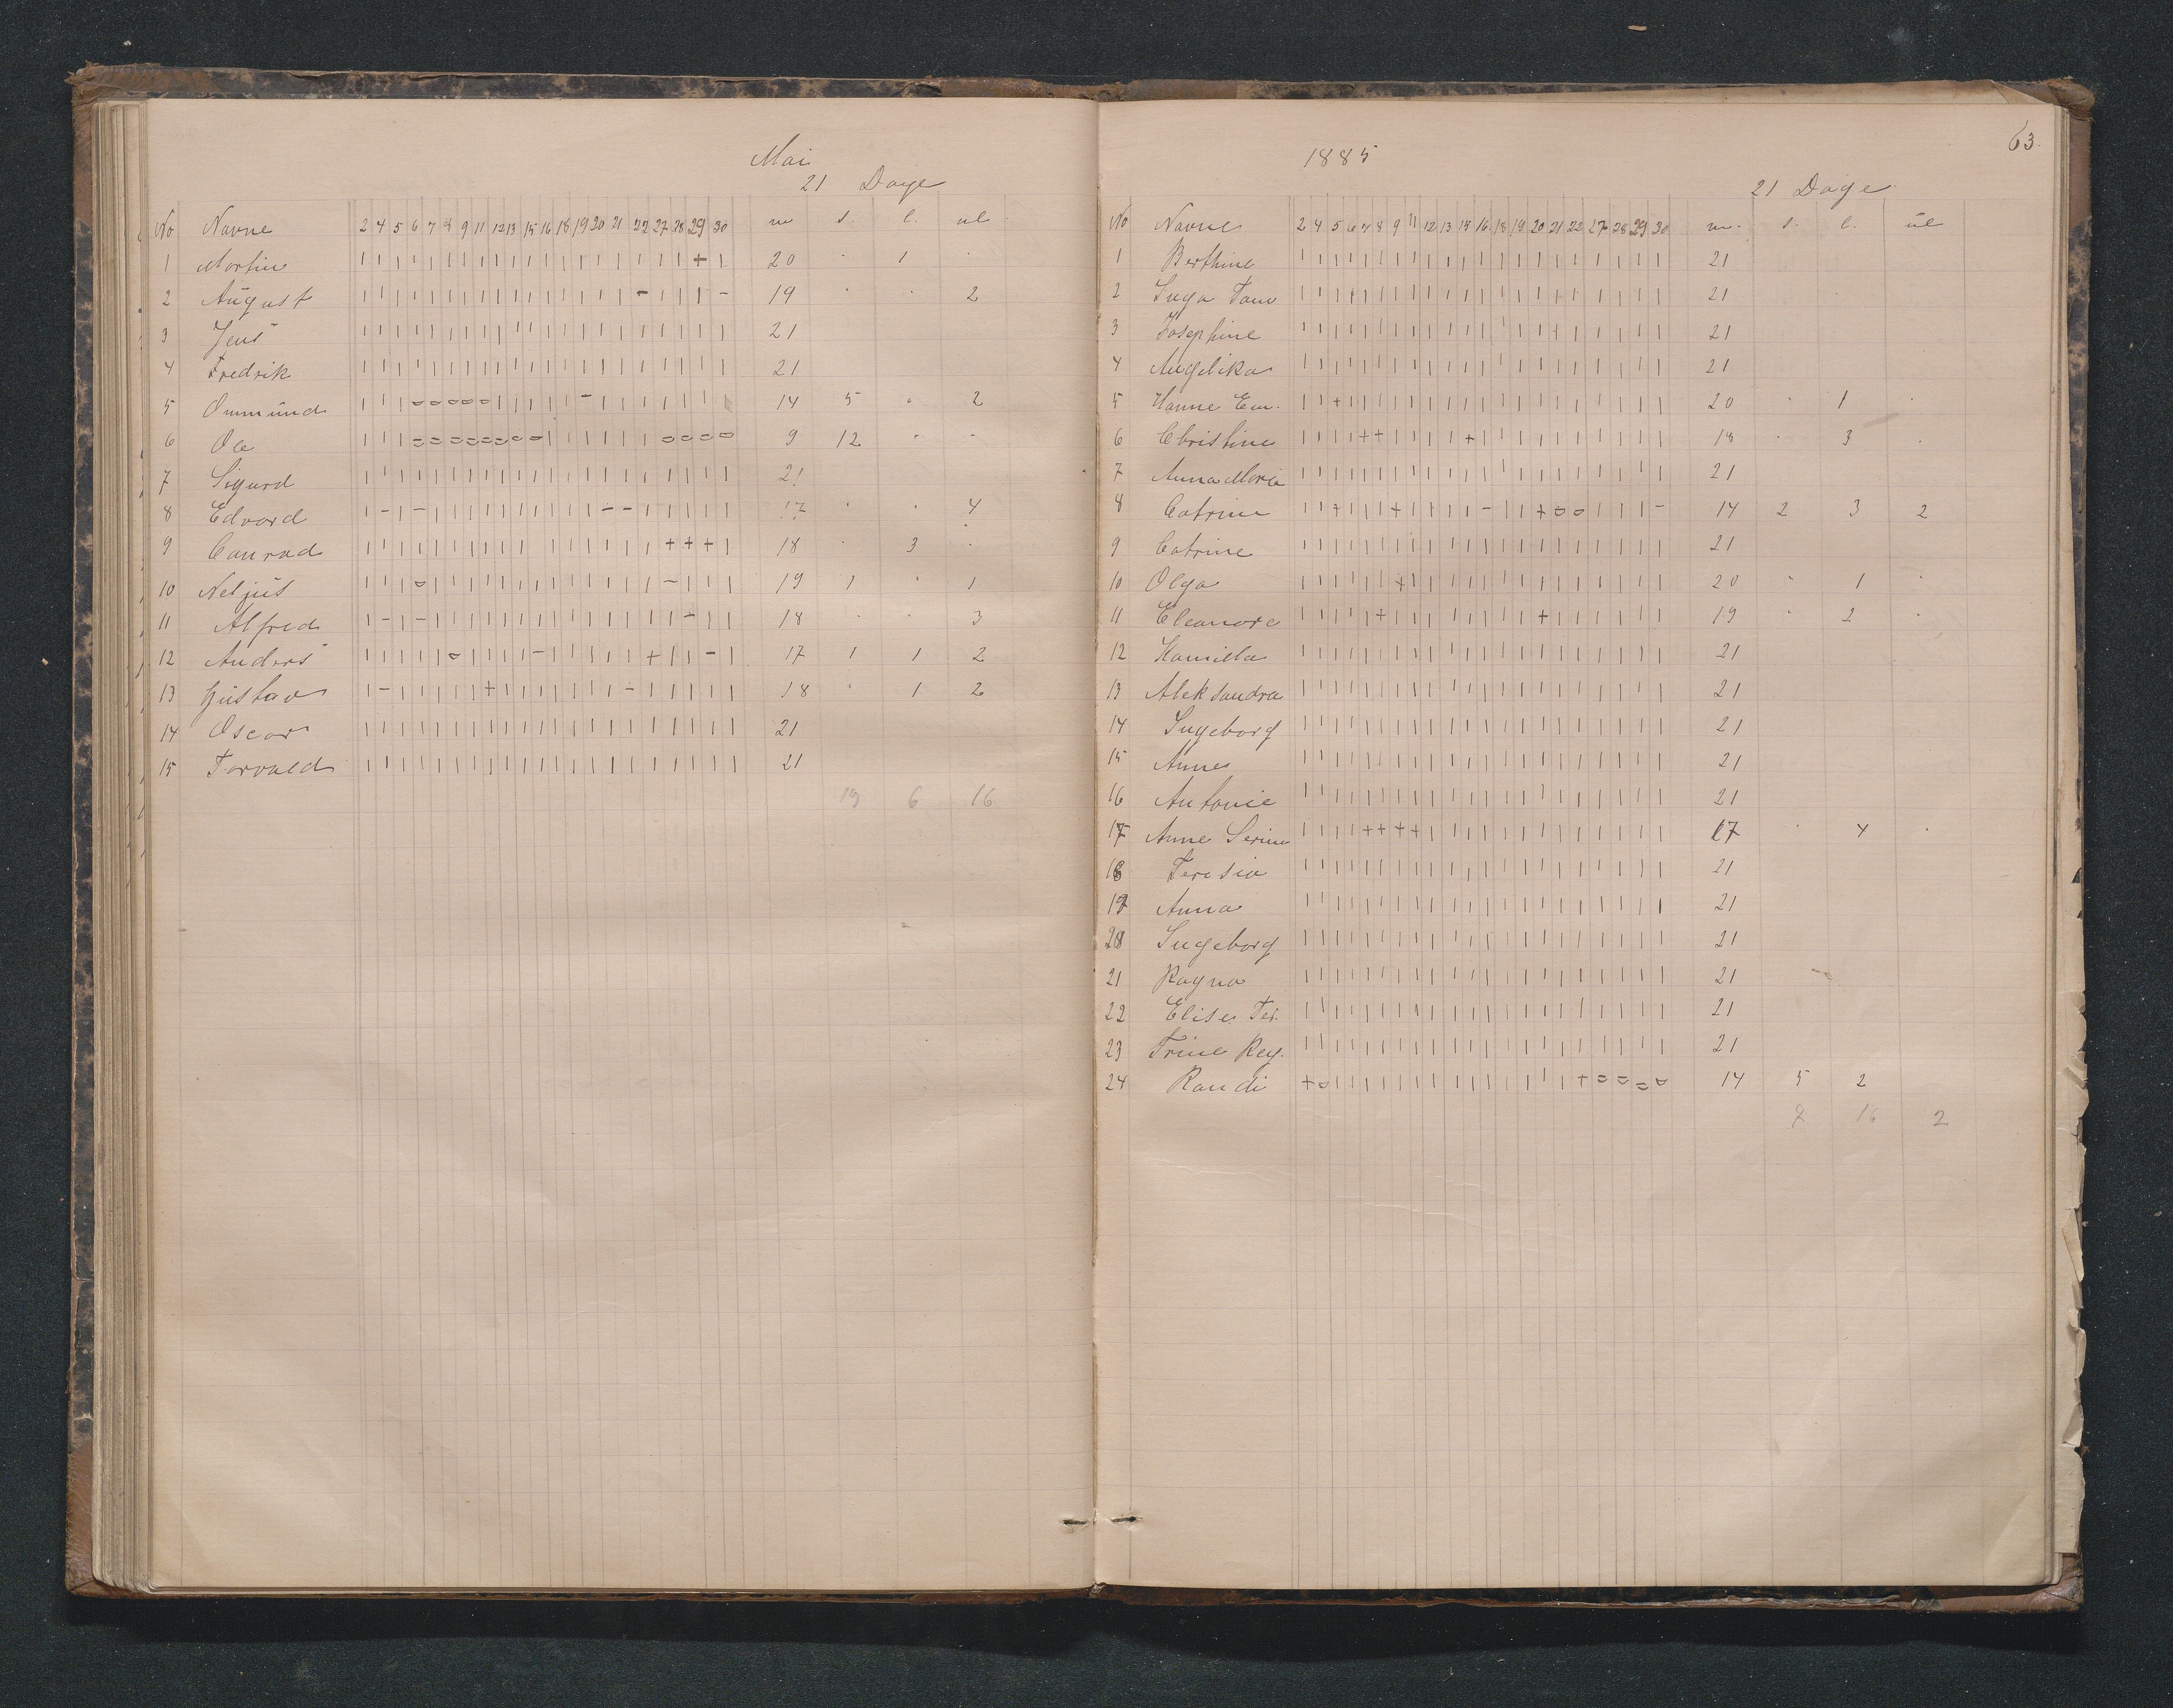 Mai
21 Dage
No Navne 2 4 5 6 7 8 9 11 12 13 15 16 18 19 20 21 22 27 28 29 30 m s. l. ul
1 Martin | | | | | | | | | | | | | | | | | | | + | 20 . 1 .
2 August | | | | | | | | | | | | | | | | - | | | - 19 . . 2
3 Jens | | | | | | | | | | | | | | | | | | | | | 21
4 Fredrik | | | | | | | | | | | | | | | | | | | | | 21
5 Ommund 14 5 . 2
6 Ole 9 12 . .
7 Sigurd | | | | | | | | | | | | | | | | | | | | | 21
8 Edvard | - | - | | | | | | | | | | - - | | | | | 17 . . 4
9 Conrad | | | | | | | | | | | | | | | | | + + + | 18 . 3 .
10 Neljus | | | o | | | | | | | | | | | | | | - | | | 19 1 . 1
11 Alfred | - | - | | | | | | | | | | | | | | | - | | 18 . . 3
12 Anders | | | | | o | | | | - | | | | | | + | | - | 17 1 1 2
13 Gustav | - | | | | | + | | | | | | | - | | | | | | 18 . 1 2
14 Oscar | | | | | | | | | | | | | | | | | | | | | 21
15 Torvald | | | | | | | | | | | | | | | | | | | | | 21
19 6 16
63.
1885
21 Dage
No Navne 2 4 5 6 7 8 9 11 12 13 15 16 18 19 20 21 22 27 28 29 30 m. s. l. ul
1 Berthine | | | | | | | | | | | | | | | | | | | | | 21
2 Inga Tom | | | | | | | | | | | | | | | | | | | | | 21
3 Josephine | | | | | | | | | | | | | | | | | | | | | 21
4 Angelika | | | | | | | | | | | | | | | | | | | | | 21
5 Hanne Em. | | + | | | | | | | | | | | | | | | | | | 20 . 1 .
6 Christine | | | | + + | | | | + | | | | | | | | | | 18 . 3 .
7 Anna Maria | | | | | | | | | | | | | | | | | | | | | 21
8 Catrine 14 2 3 2
9 Catrine | | | | | | | | | | | | | | | | | | | | | 21
10 Olga | | | | | | + | | | | | | | | | | | | | | 20 . 1 .
11 Eleanore | | | | | + | | | | | | | | | + | | | | | | 19 . 2 .
12 Kamilla | | | | | | | | | | | | | | | | | | | | | 21
13 Aleksandra | | | | | | | | | | | | | | | | | | | | | 21
14 Ingeborg | | | | | | | | | | | | | | | | | | | | | 21
15 Anne | | | | | | | | | | | | | | | | | | | | | 21
16 Antonie | | | | | | | | | | | | | | | | | | | | | 21
17 Anne Serine | | | | + + + + | | | | | | | | | | | | | 17 . 4 .
18 Teresia | | | | | | | | | | | | | | | | | | | | | 21
19 Anna | | | | | | | | | | | | | | | | | | | | | 21
20 Ingeborg | | | | | | | | | | | | | | | | | | | | | 21
21 Ragna | | | | | | | | | | | | | | | | | | | | | 21
22 Elise Ter. | | | | | | | | | | | | | | | | | | | | | 21
23 Trine Reg. | | | | | | | | | | | | | | | | | | | | | 21
24 Randi + o | | | | | | | | | | | | | | + o o o o 14 5 2
7 16 2